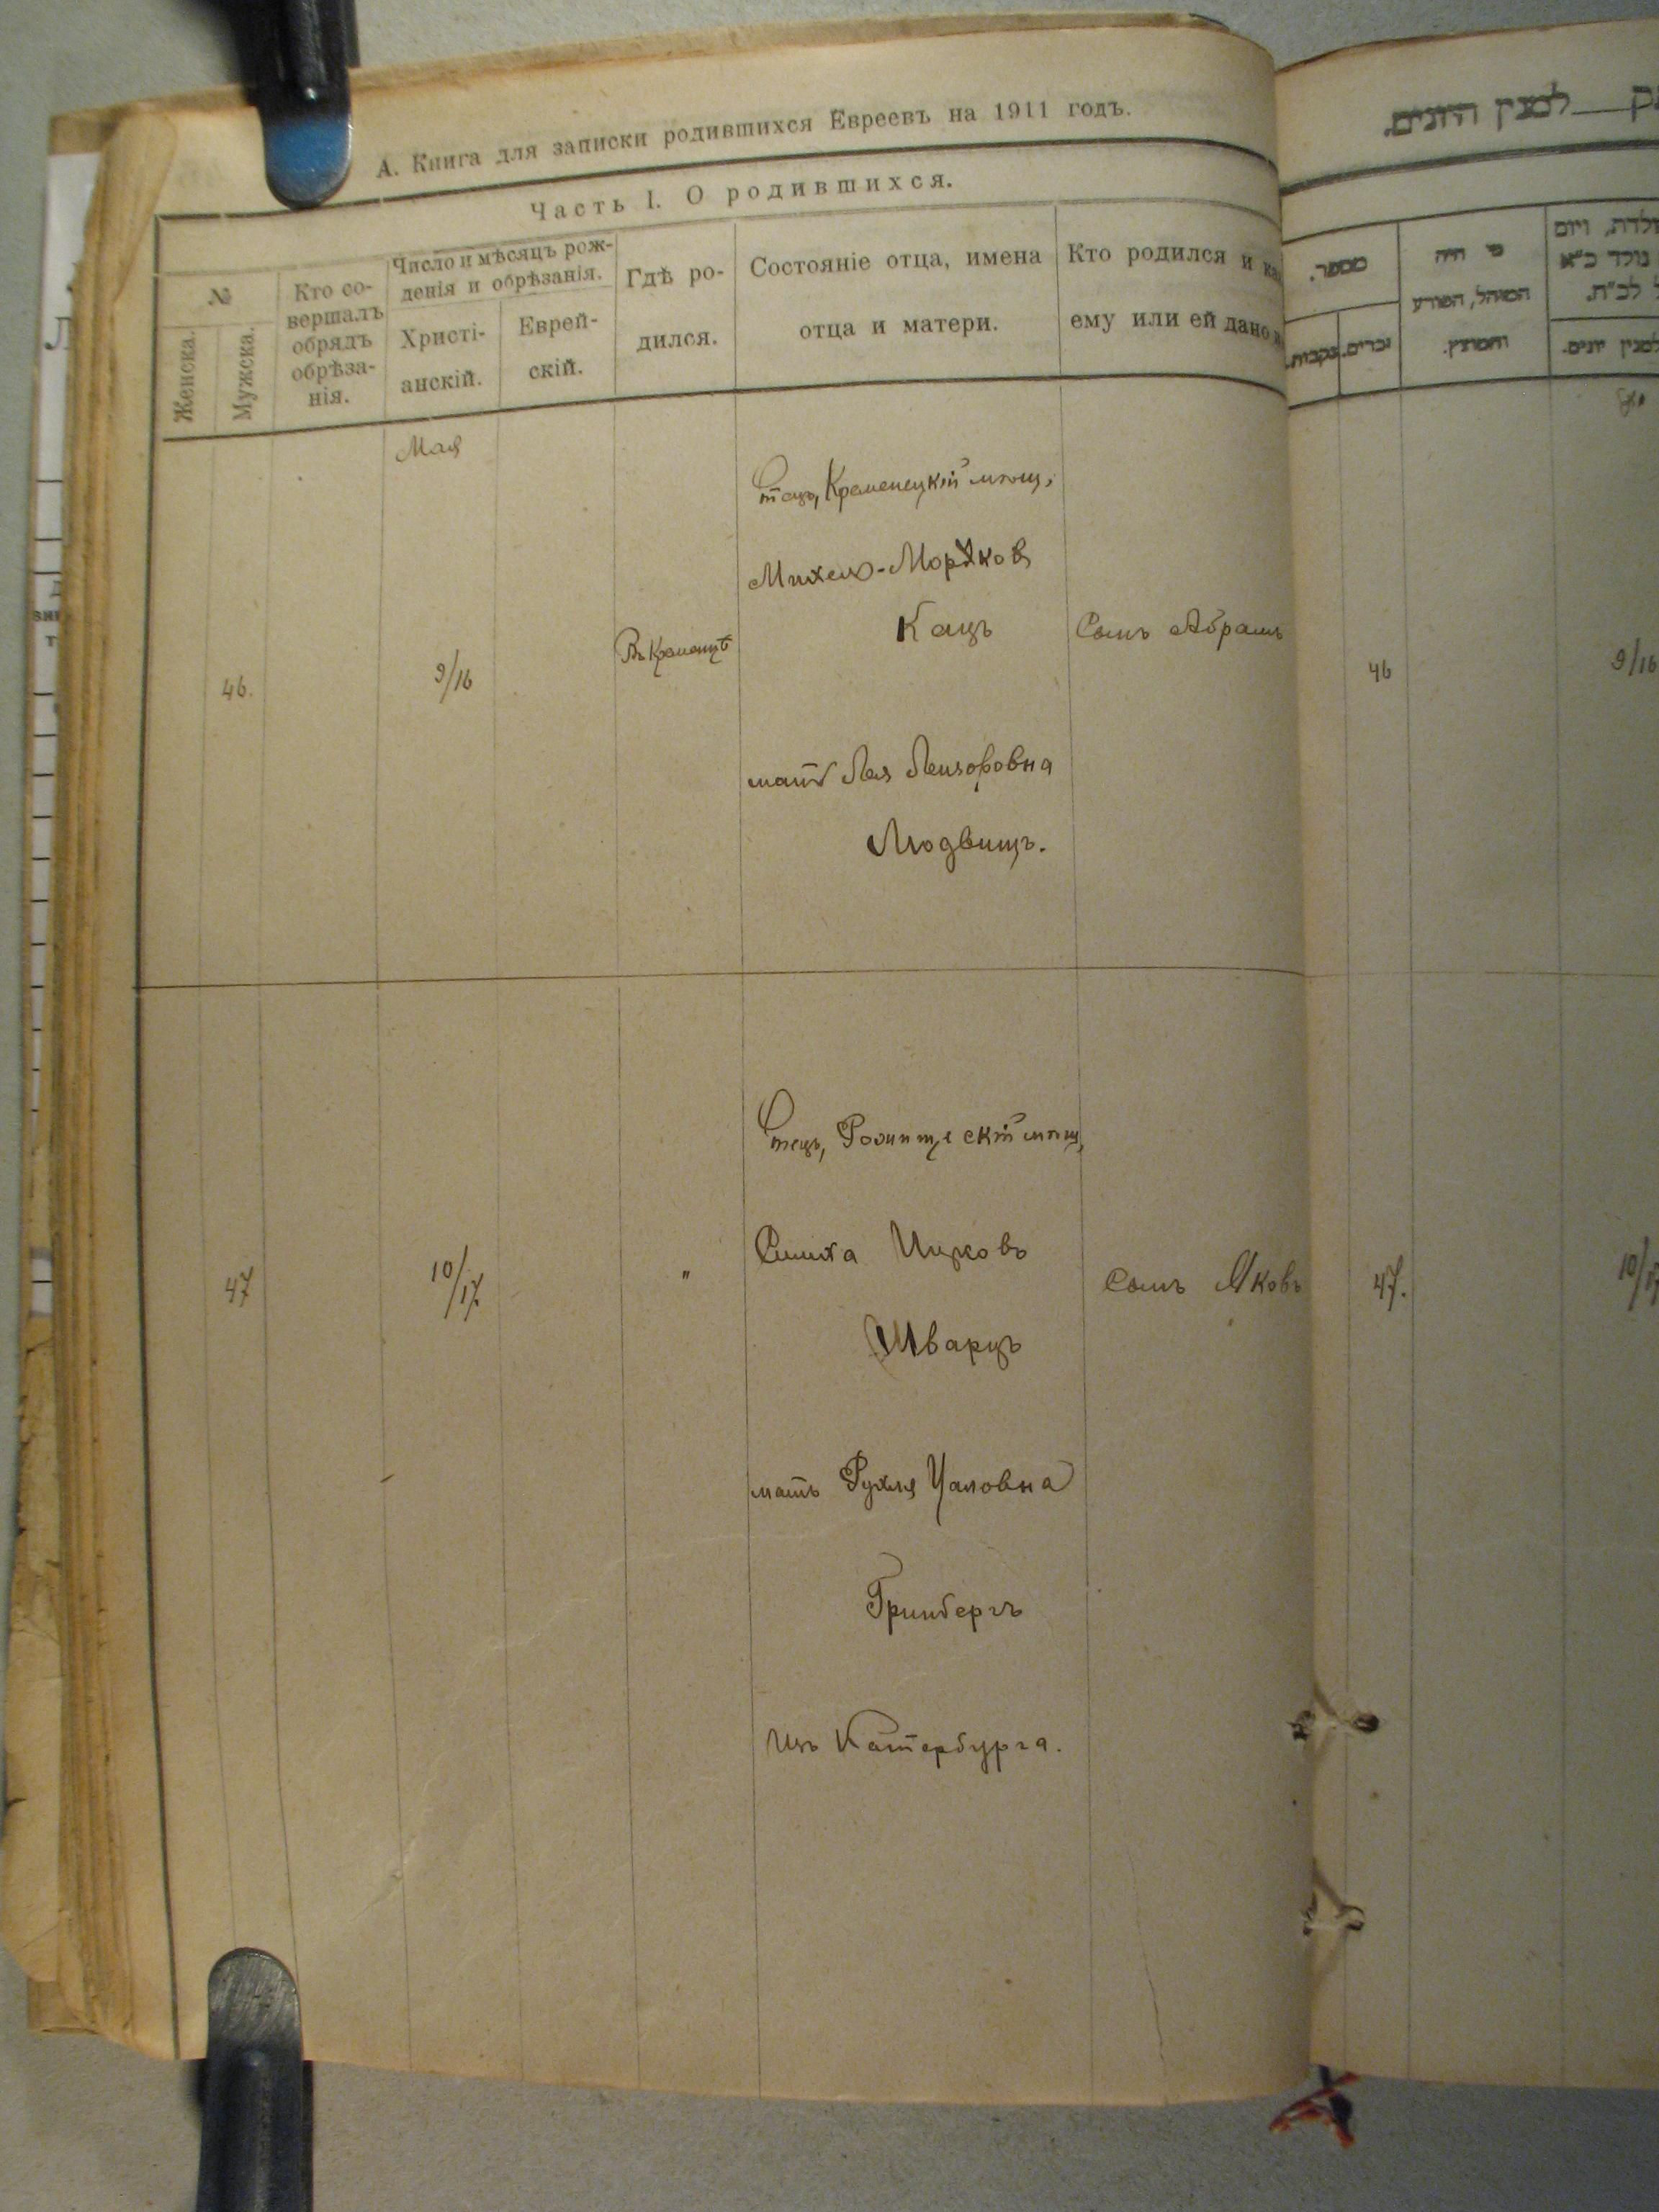 А. Книга для записки родившихся Евреевъ на 1911 годъ.
Часть I. О родившихся.
№
Женска.
Мужска.
Кто со-
вершалъ
обрядъ
обрѣза-
нія.
Число и мѣсяцъ рож-
денія и обрѣзанія.
Христі-
анскій.
Еврей-
скій.
Гдѣ ро-
дился.
Состояніе отца, имена
отца и матери.
Кто родился и ка
ему или ей дано
Мая
46.
9/16
Въ Кременцѣ
Отецъ, Кременецкій мѣщ.
Михель-Мордков
Кацъ
мать Лея Лейзоровна
Людвищъ.
Сынъ Абрамъ
47
10/17
"
Отецъ, мѣщ,
Симха Ицковъ
Шварцъ
мать Рухля
Гринбергъ
Изъ Катербурга.
Сынъ Яковъ
למנין היונים.
מספר.
זכרים.
נקבות.
מי היה
המוהל, הפורע
והמוצץ.
ולדת, ויום
נולד כ"א
לכ"ח.
למנין יונים.
46
9/16
47.
10/17